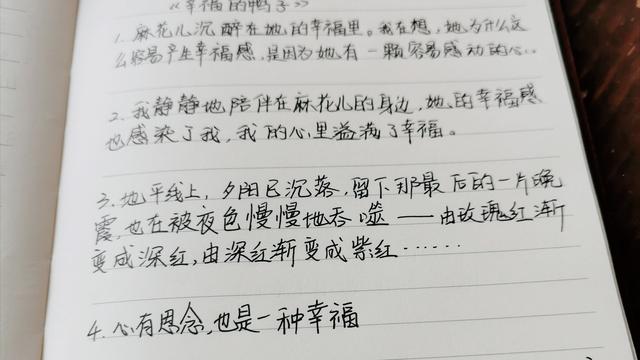 《幸福的鸭子》
1. 麻花儿沉醉在她的幸福里。我在想，她为什么这
么容易产生幸福感，是因为她有一颗容易感动的心…
2. 我静静地陪伴在麻花儿的身边，她的幸福感
也感染了我，我的心里溢满了幸福。
3. 地平线上，夕阳已沉落，留下那最后的一片晚
霞也在被夜色慢慢地吞噬——由玫瑰红渐
变成深红，由深红渐变成紫红……
4. 心有思念，也是一种幸福